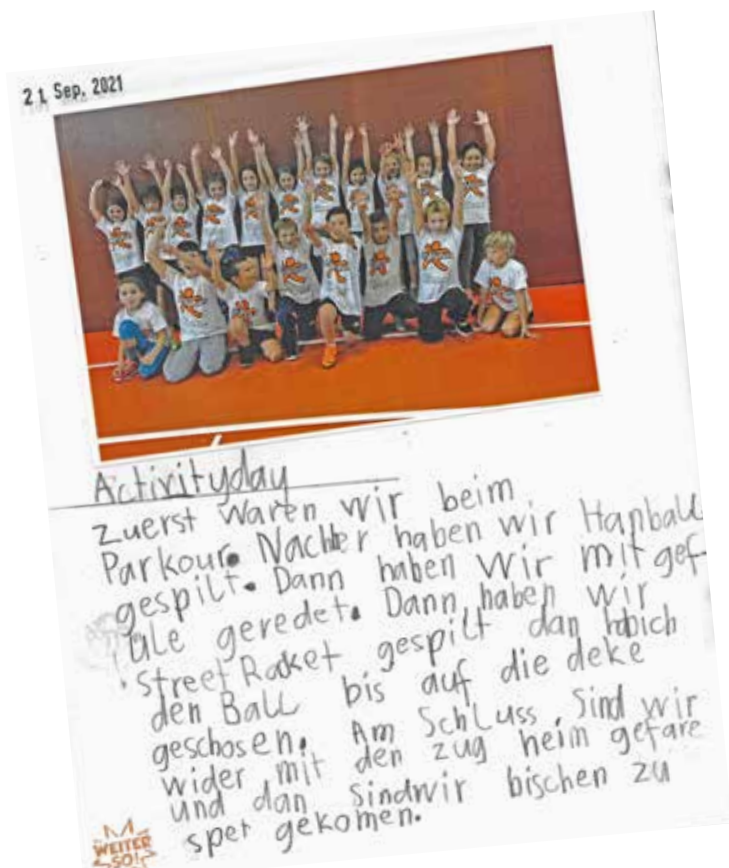 21. Sep. 2021
Activityday
zuerst waren wir beim
Parkour. Nachher haben wir Hanball
gespilt. Dann haben wir mit gef-
üle geredet. Dann haben wir
Street Racket gespilt dan habich
den Ball bis auf die deke
geschosen. Am Schluss, sind wir
wider mit den zug heim gefare
und dan sindwir bischen zu
spet gekomen.
WEITER
SO!